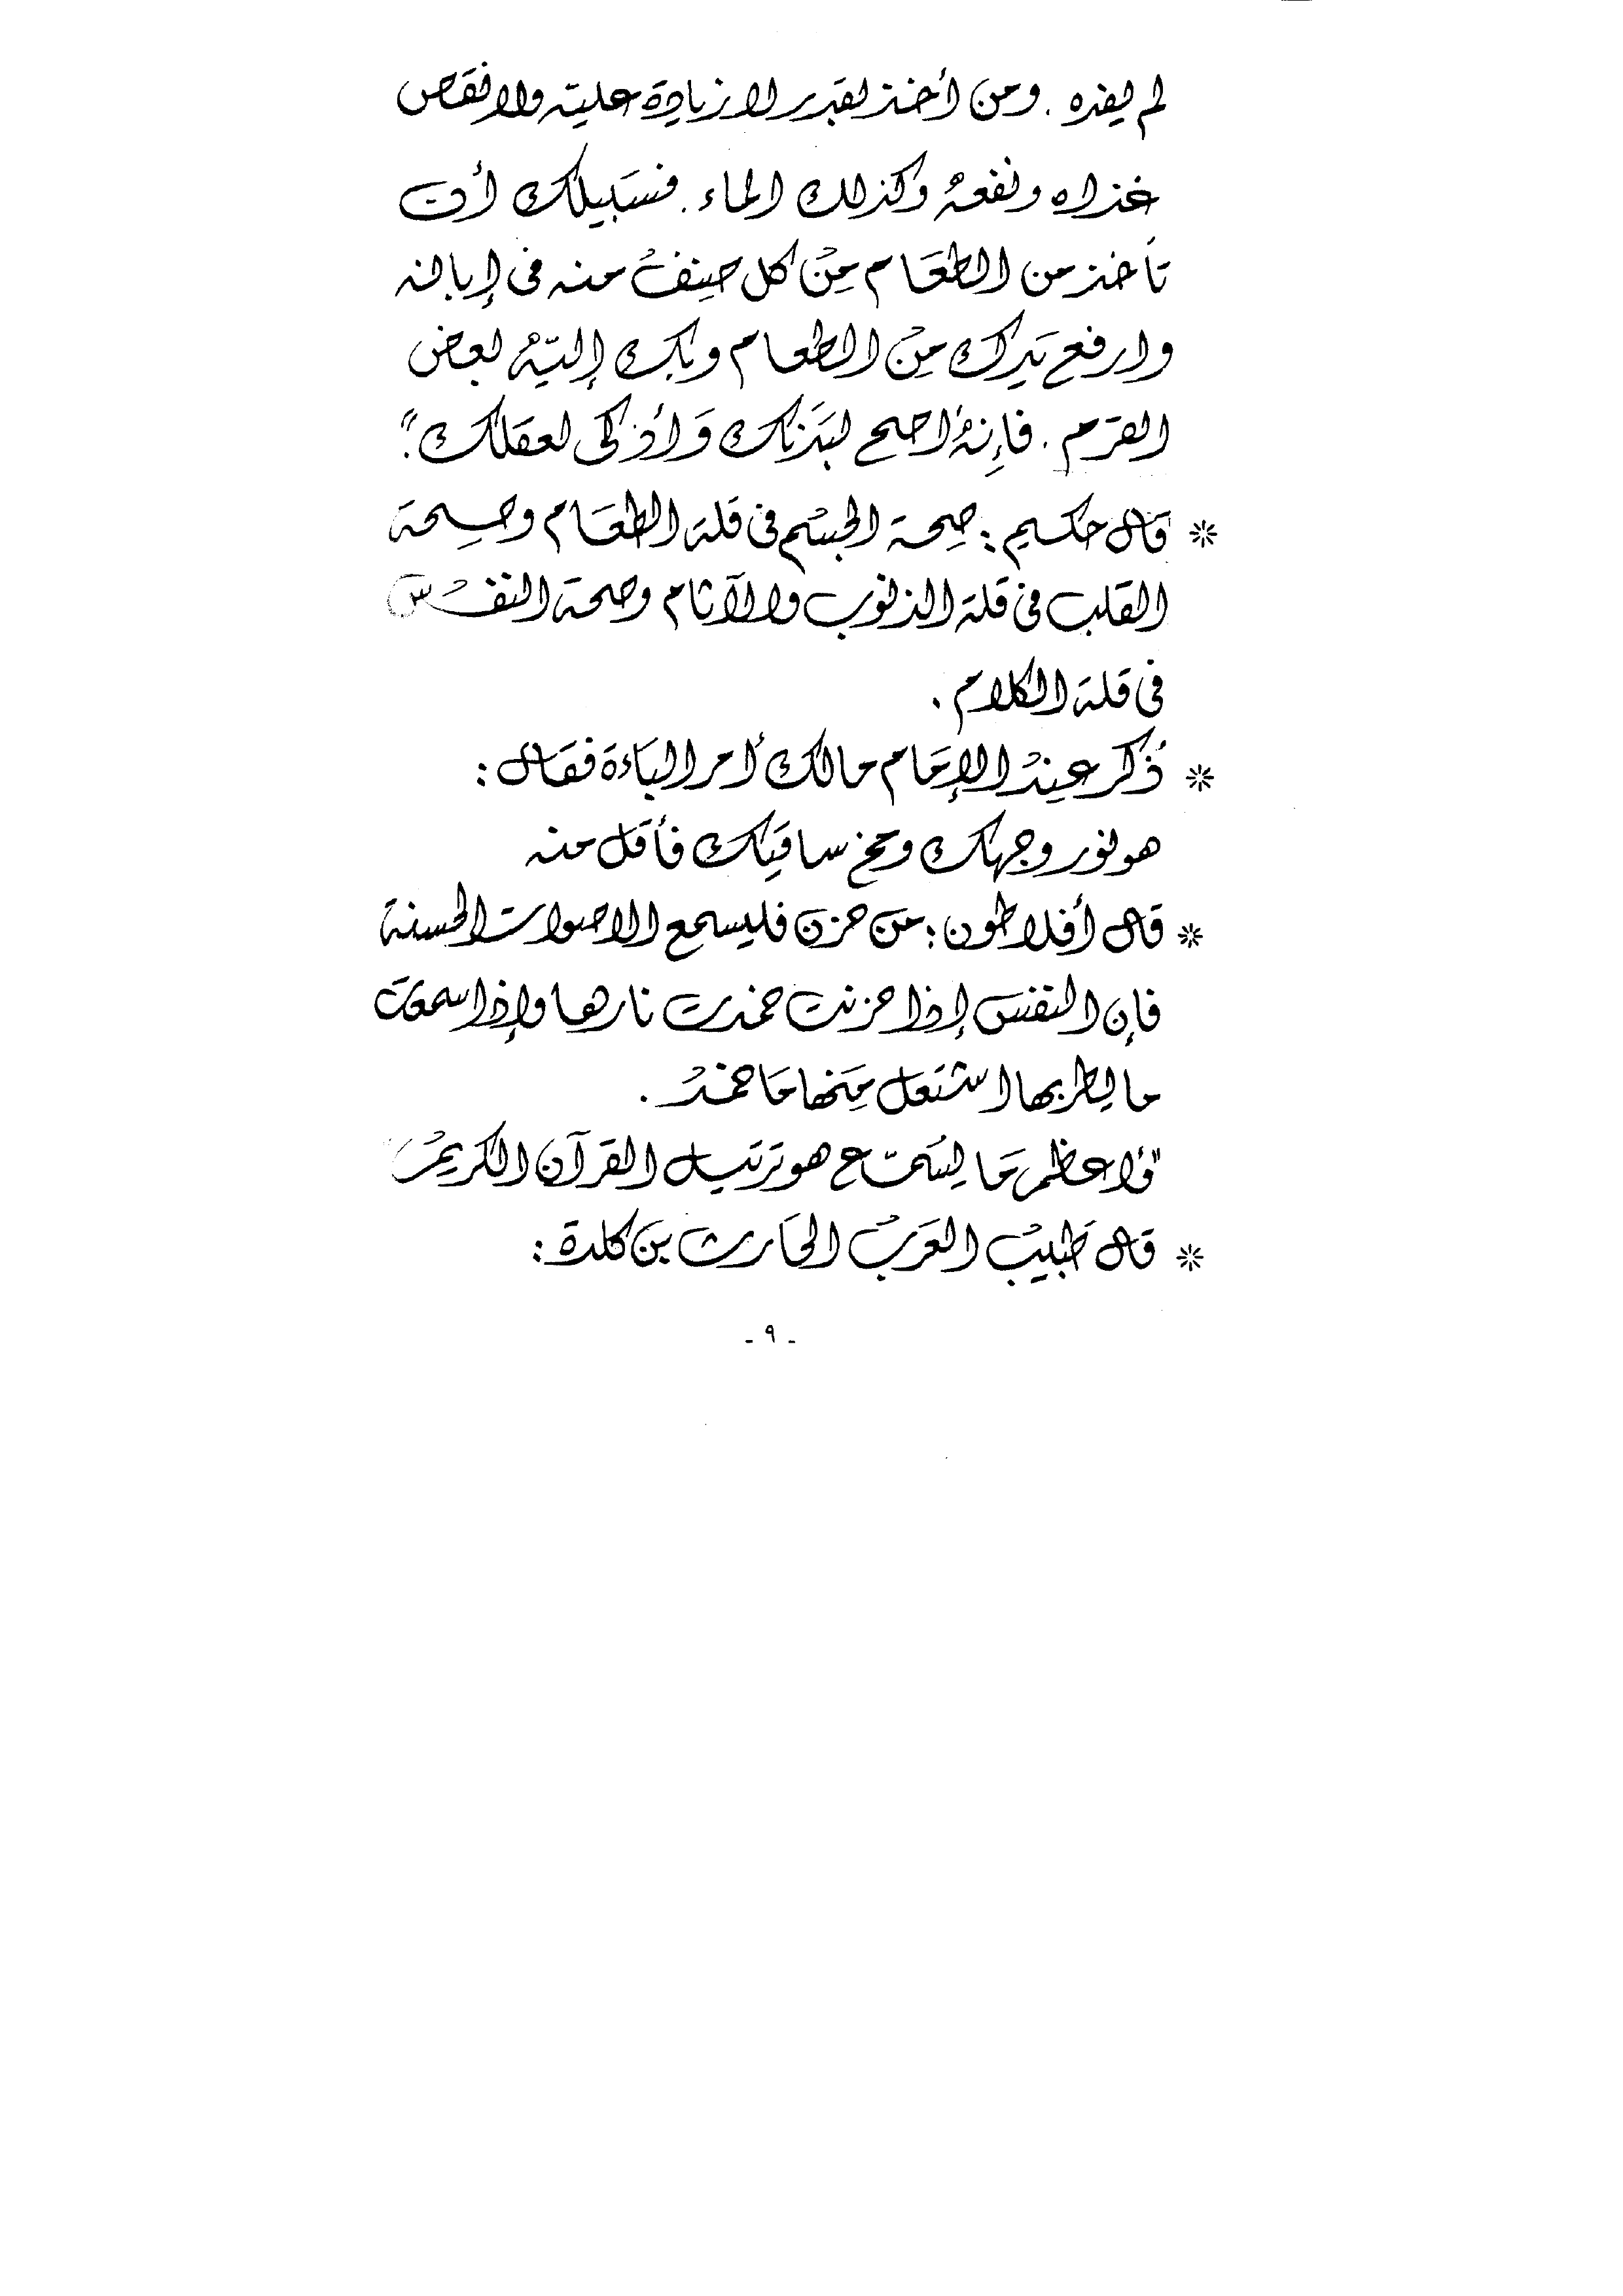 لم يغذه . ومن أخذ بقدر لا زيادة عليه ولا نقص
غذاه ونفعه وكذلك الماء . فسبيلك أن
تأخذ من الطعام من كل صنف منه في إبانه
وارفع يدك من الطعام وبك إليه بعض
القرم . فإنه أصح لبدنك وأذكى لعقلك" .
* قال حكيم : صحة الجسم في قلة الطعام وصحة
القلب في قلة الذنوب والآثام وصحة النفس
في قلة الكلام .
* ذُكر عند الإمام مالك أمر الباءة فقال :
هو نور وجهك ومخ ساقيك فأقل منه
* قال أفلاطون : من حزن فليسمع الاصوات الحسنة
فإن النفس إذا حزنت خمدت نارها وإذا سمعت
ما يطربها اشتعل منها ما خمد .
"وأعظم ما يسمع هو ترتيل القرآن الكريم"
* قال طبيب العرب الحارث بن كلدة :
- ٩ -